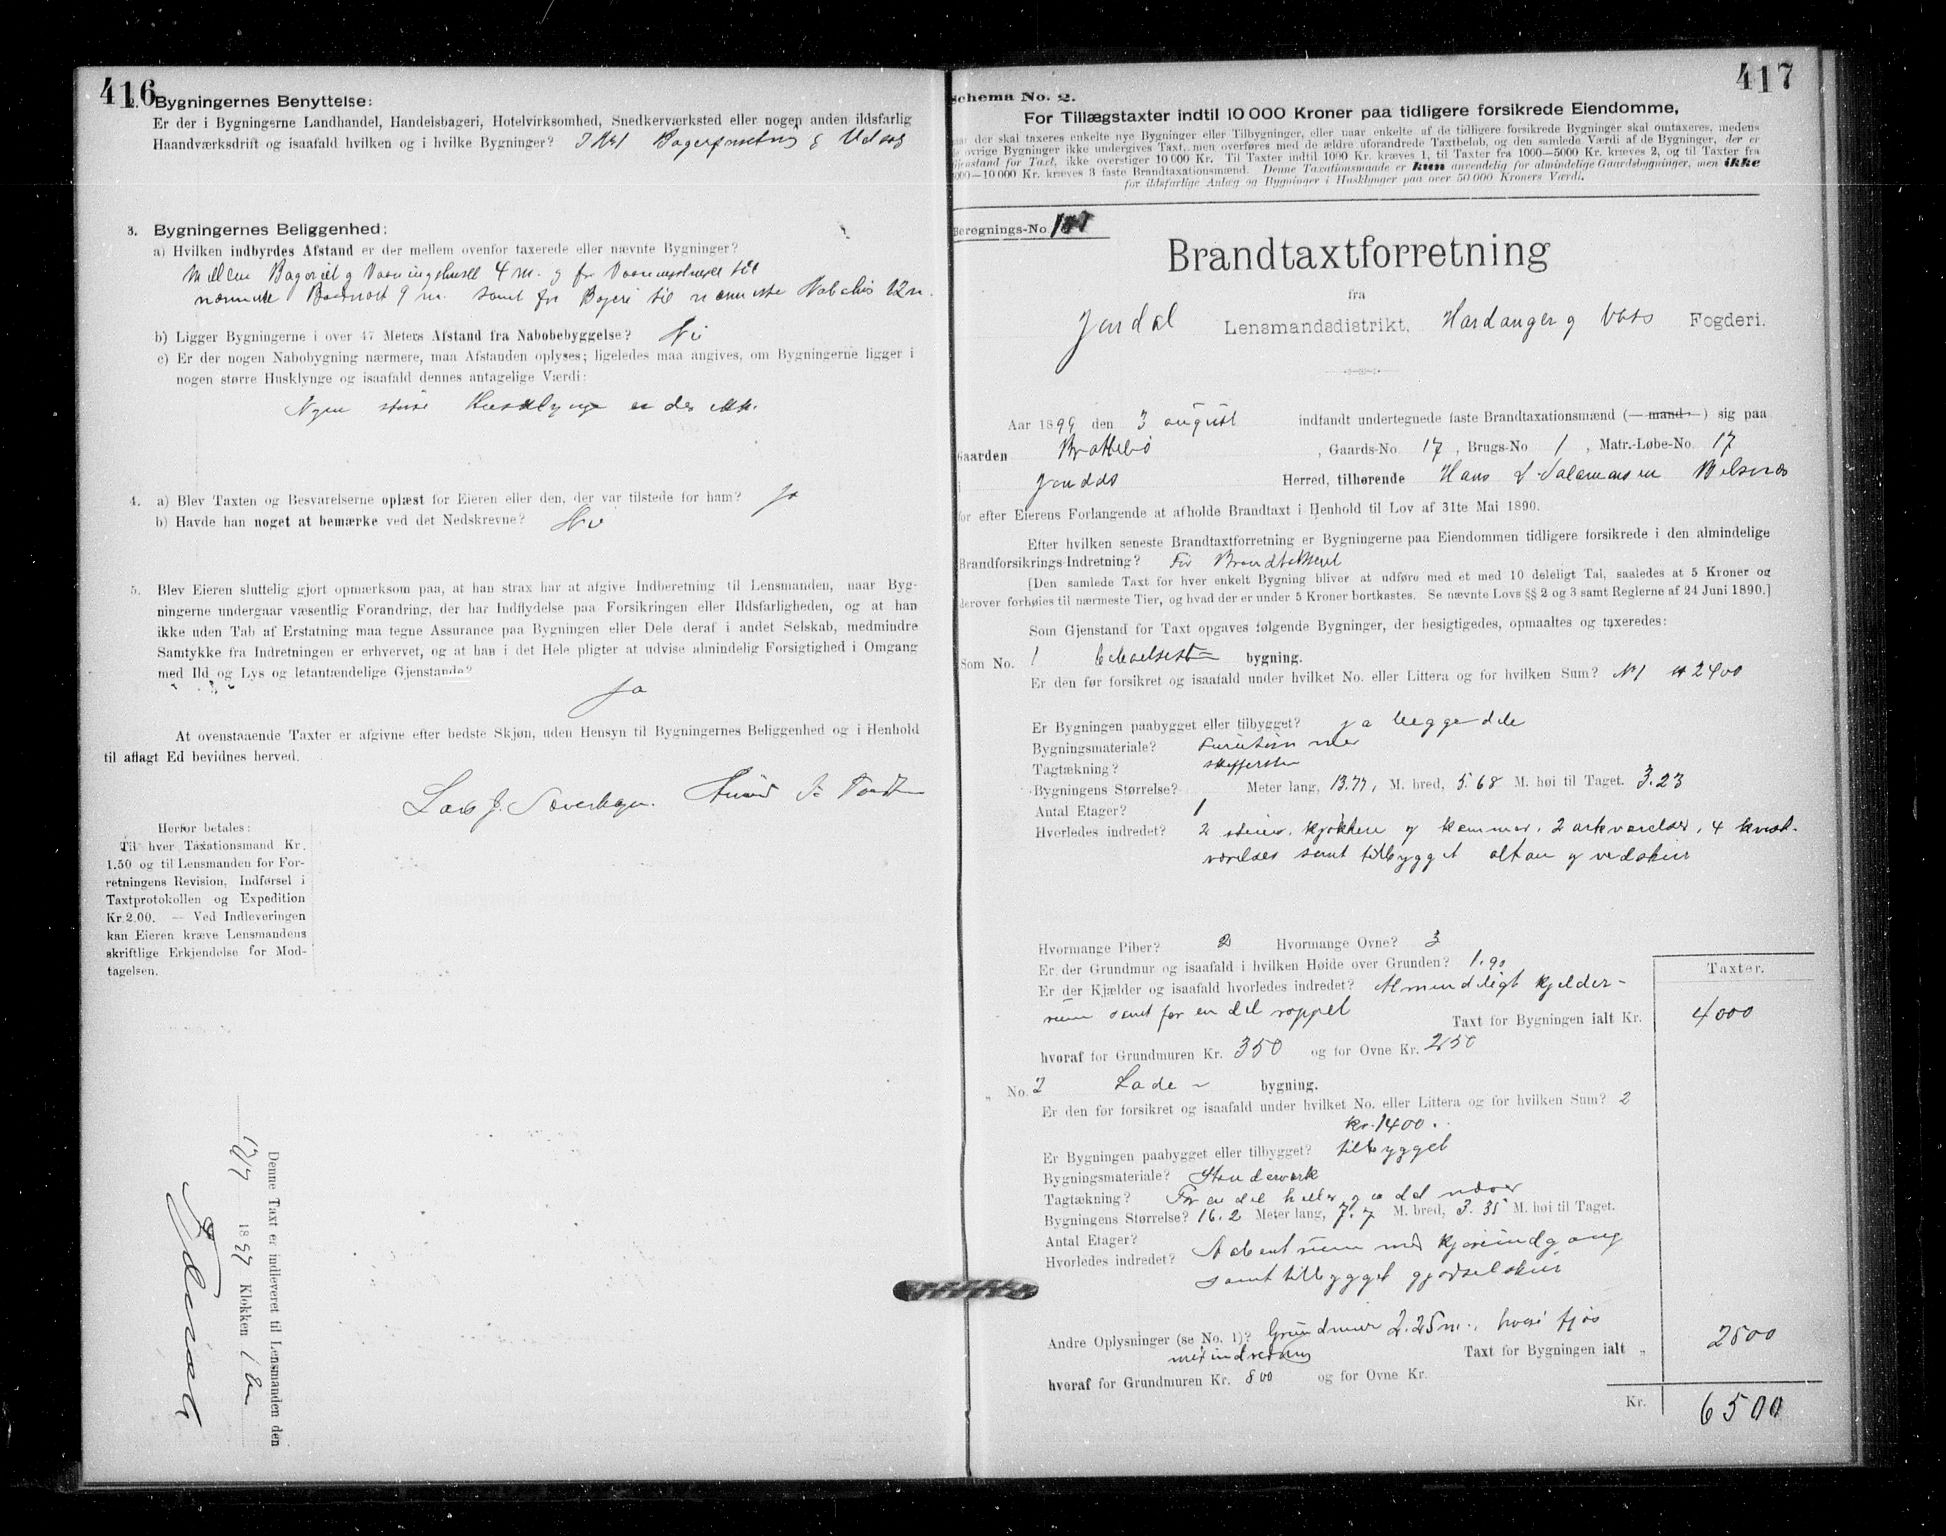 416
2. Bygningernes Benyttelse:
Er der i Bygningerne Landhandel, Handelsbageri, Hotelvirksomhed, Snedkerværksted eller nogen anden ildsfarlig
Haandværksdrift og isaafald hvilken og i hvilke Bygninger? I No 1 og Udsalg
3. Bygningernes Beliggenhed:
a) Hvilken indbyrdes Afstand er der mellem ovenfor taxerede eller nævnte Bygninger?
Mellem Bageriet og Vaaningshuset 4 m. og fra Vaaningshuset til
nærmeste 9 m. samt fra Bageri til nærmeste 12 m.
b) Ligger Bygningerne i over 47 Meters Afstand fra Nabobebyggelse? Nei
c) Er der nogen Nabobygning nærmere, maa Afstanden oplyses; ligeledes maa angives, om Bygningerne ligger i
nogen større Husklynge og isaafald dennes antagelige Værdi:
Nogen større Husklynge er der ikke.
4. a) Blev Taxten og Besvarelserne oplæst for Eieren eller den, der var tilstede for ham? Ja
b) Havde han noget at bemærke ved det Nedskrevne? Nei
5. Blev Eieren sluttelig gjort opmærksom paa, at han strax har at afgive Indberetning til Lensmanden, naar Byg-
ningerne undergaar væsentlig Forandring, der har Indflydelse paa Forsikringen eller Ildsfarligheden, og at han
ikke uden Tab af Erstatning maa tegne Assurance paa Bygningen eller Dele deraf i andet Selskab, medmindre
Samtykke fra Indretningen er erhvervet, og at han i det Hele pligter at udvise almindelig Forsigtighed i Omgang
med Ild og Lys og letantændelige Gjenstande?
Ja
At ovenstaaende Taxter er afgivne efter bedste Skjøn, uden Hensyn til Bygningernes Beliggenhed og i Henhold
til aflagt Ed bevidnes herved.
Lars J.
Herfor betales:
Til hver Taxationsmand Kr.
1.50 og til Lensmanden for For-
retningens Revision, Indførsel i
Taxtprotokollen og Expedition
Kr. 2.00. — Ved Indleveringen
kan Eieren kræve Lensmandens
skriftlige Erkjendelse for Mod-
tagelsen.
Denne Taxt er indleveret til Lensmanden den
1899 Klokken 1 Em
417
Schema No. 2.
For Tillægstaxter indtil 10 000 Kroner paa tidligere forsikrede Eiendomme,
naar der skal taxeres enkelte nye Bygninger eller Tilbygninger, eller naar enkelte af de tidligere forsikrede Bygninger skal omtaxeres, medens
de øvrige Bygninger ikke undergives Taxt, men overføres med de ældre uforandrede Taxtbeløb, og den samlede Værdi af de Bygninger, der er
Gjenstand for Taxt, ikke overstiger 10 000 Kr. Til Taxter indtil 1000 Kr. kræves 1, til Taxter fra 1000—5000 Kr. kræves 2, og til Taxter fra
5000—10 000 Kr. kræves 3 faste Brandtaxationsmænd. Denne Taxationsmaade er kun anvendelig for almindelige Gaardsbygninger, men ikke
for ildsfarlige Anlæg og Bygninger i Husklynger paa over 50 000 Kroners Værdi.
Beregnings-No.
Brandtaxtforretning
fra
Jondal Lensmandsdistrikt, Hardanger og Voss Fogderi.
Aar 1899 den 3 august indfandt undertegnede faste Brandtaxationsmænd (—mand—) sig paa
Gaarden Brattebø, Gaards-No. 17, Brugs-No 1, Matr.-Løbe-No. 17
Jondals Herred, tilhørende Hans Salamonsen Belsnes
for efter Eierens Forlangende at afholde Brandtaxt i Henhold til Lov af 31te Mai 1890.
Efter hvilken seneste Brandtaxtforretning er Bygningerne paa Eiendommen tidligere forsikrede i den almindelige
Brandforsikrings-Indretning? For Brandtaxeret
[Den samlede Taxt for hver enkelt Bygning bliver at udføre med et med 10 deleligt Tal, saaledes at 5 Kroner og
derover forhøies til nærmeste Tier, og hvad der er under 5 Kroner bortkastes. Se nævnte Lovs §§ 2 og 3 samt Reglerne af 24 Juni 1890.]
Som Gjenstand for Taxt opgaves følgende Bygninger, der besigtigedes, opmaaltes og taxeredes:
Som No. 1 bygning.
Er den før forsikret og isaafald under hvilket No. eller Littera og for hvilken Sum? No 1 kr 2400
Er Bygningen paabygget eller tilbygget? ja begge dele
Bygningsmateriale?
Tagtækning?
Bygningens Størrelse? Meter lang, 13.77, M. bred, 5.68 M. høi til Taget. 3.23
Antal Etager? 1
Hvorledes indredet? 2 stuer, kjøkken og kammer, 2 arkværelser, 4 kvist-
værelser samt tilbygget altan og vedskur
Hvormange Piber? 2 Hvormange Ovne? 3
Er der Grundmur og isaafald i hvilken Høide over Grunden? 1.90
Er der Kjælder og isaafald hvorledes indredet? Almindeligt kjelder-
rum samt for en del
Taxter.
Taxt for Bygningen ialt Kr. 4000
hvoraf for Grundmuren Kr. 350 og for Ovne Kr. 250
„ No. 2 Lade - bygning.
Er den før forsikret og isaafald under hvilket No. eller Littera og for hvilken Sum? 2
kr. 1400.
Er Bygningen paabygget eller tilbygget? tilbygget
Bygningsmateriale? Standerverk
Tagtækning? For en del heller og en del næver
Bygningens Størrelse? 16.2 Meter lang, 7.7 M. bred, 3.35 M. høi til Taget.
Antal Etager?
Hvorledes indredet? Aabent rum med kjøreindgang
samt tilbygget gjødselskur
Andre Oplysninger (se No. 1)? Grundmur 2.25 m., hvori fjøs
med indredning
Taxt for Bygningen ialt „ 2500
hvoraf for Grundmuren Kr. 800 og for Ovne Kr.
Kr. 6500